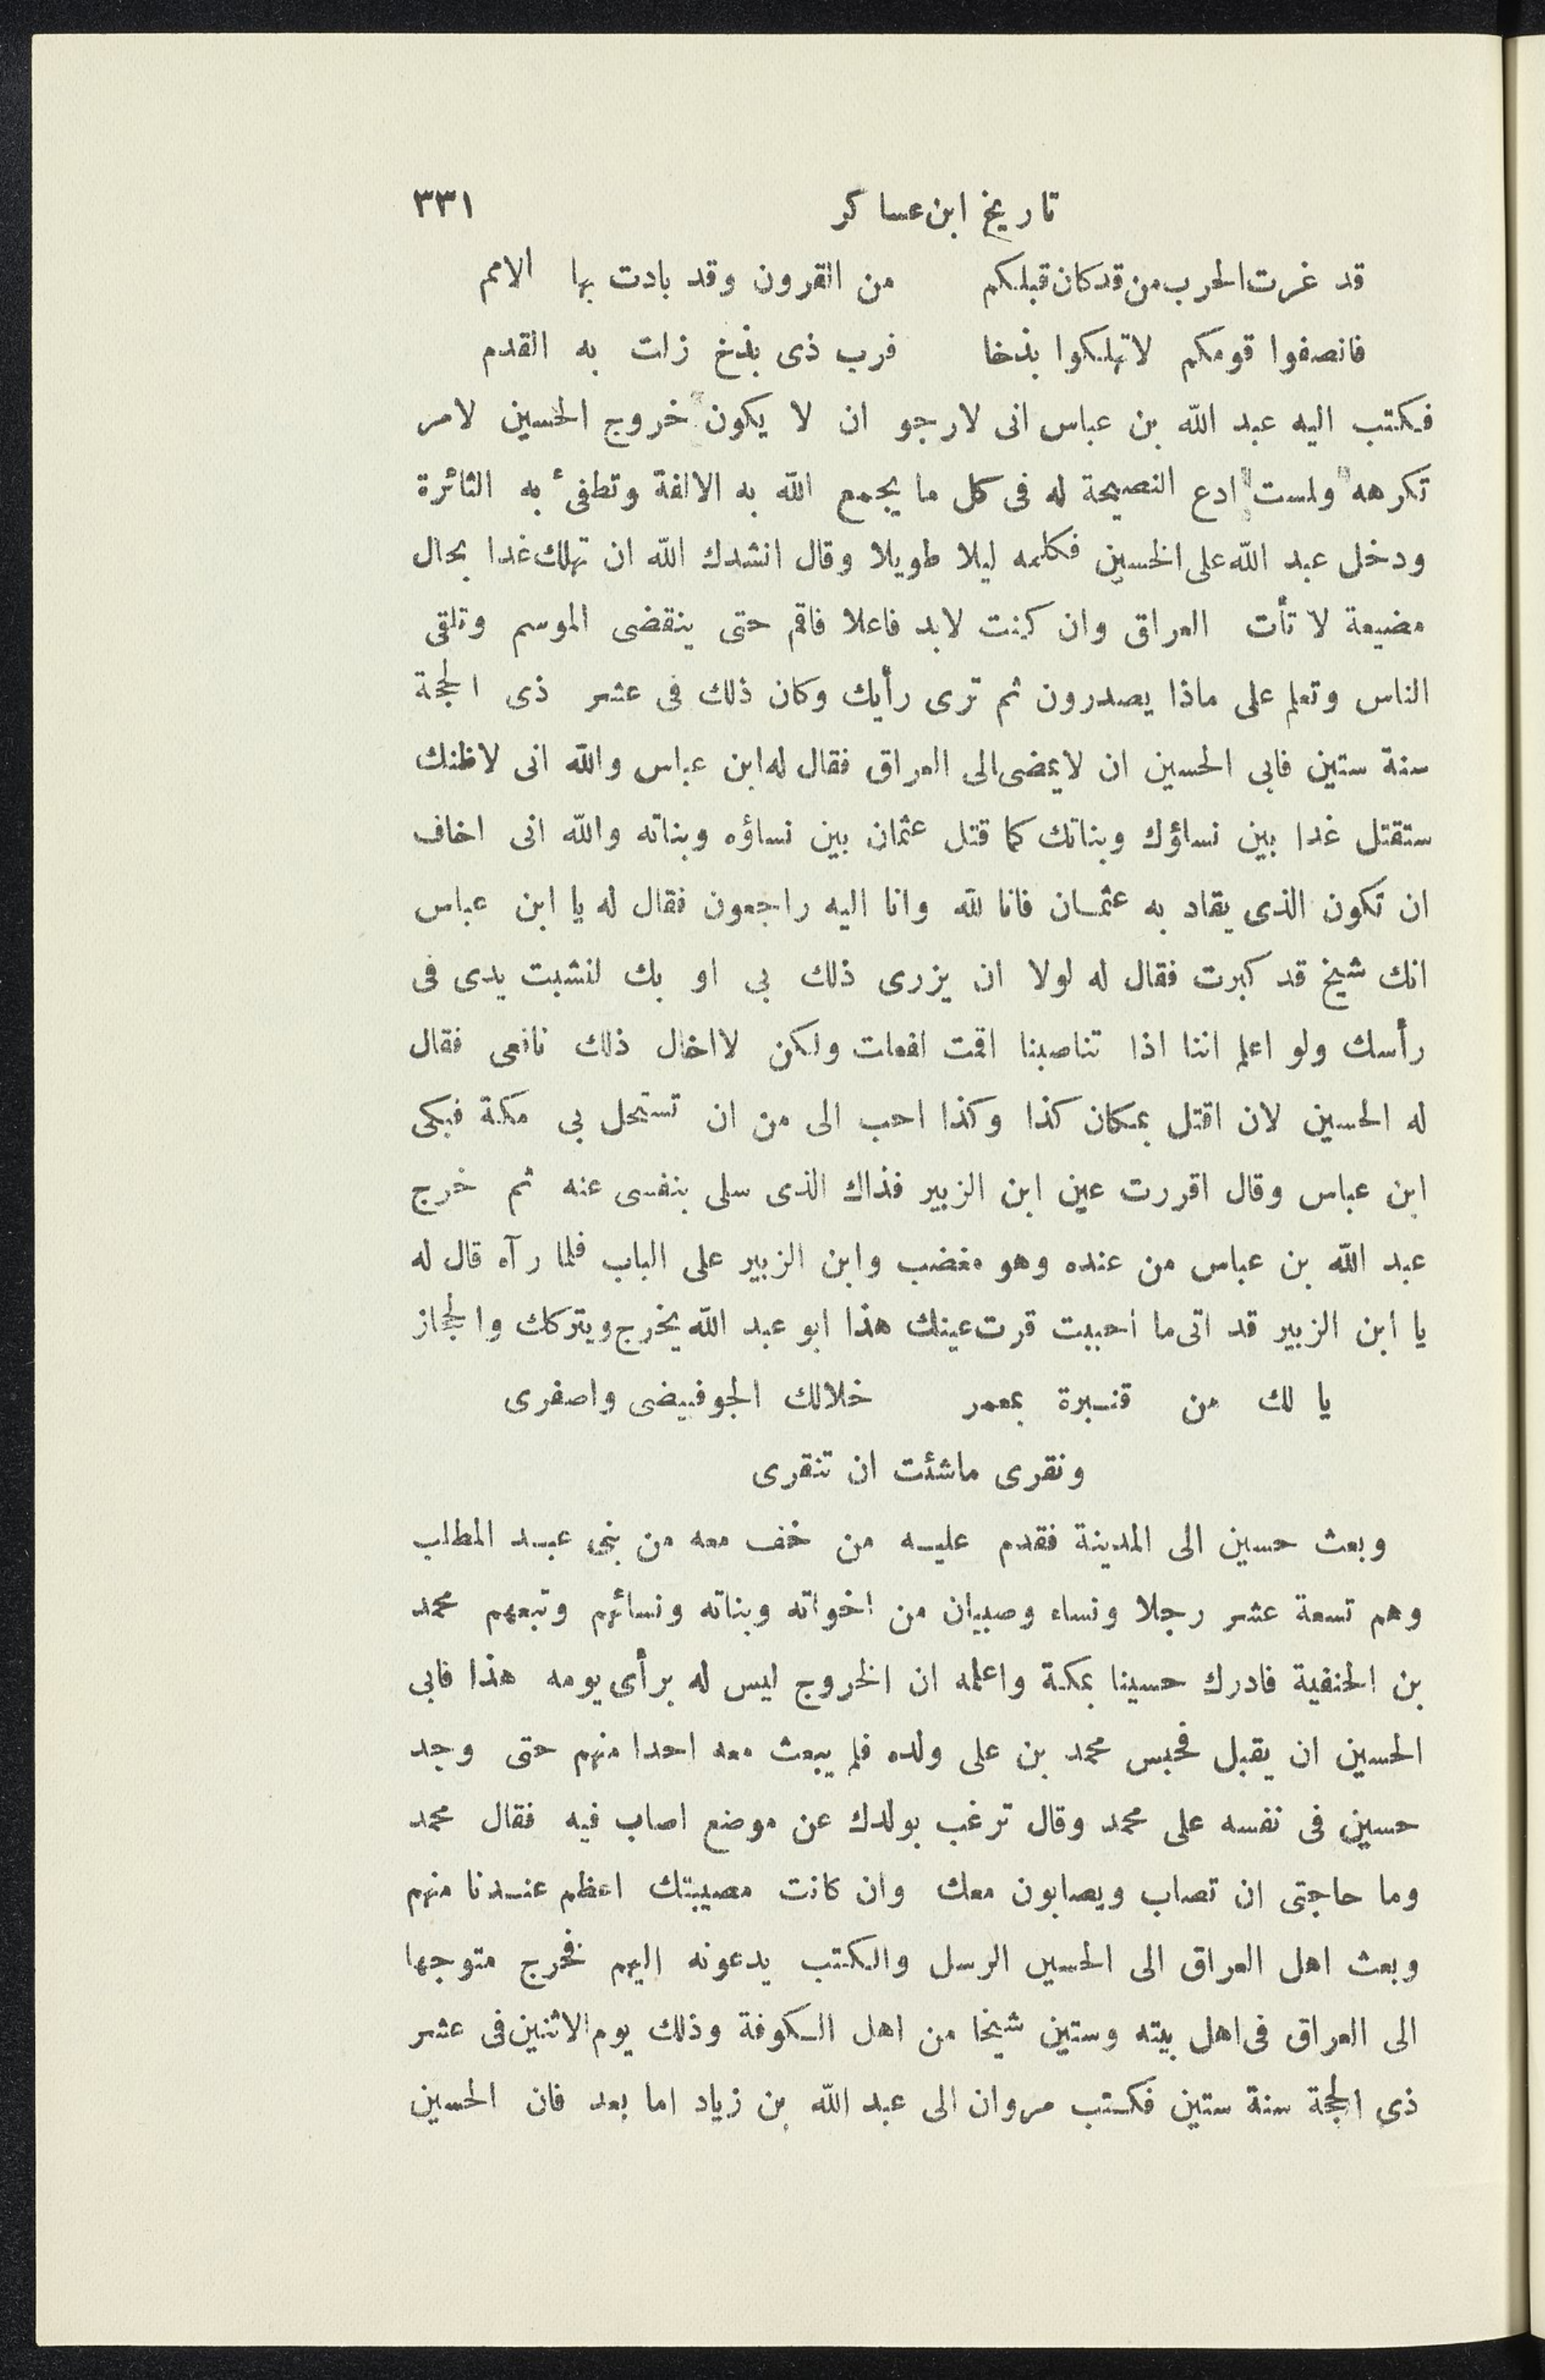 تاريخ ابن عساكر ٣٣١
قد غرت الحرب من قد كان قبلكم من القرون وقد بادت بها الامم
فانصفوا قومكم لا تهلكوا بذخا فرب ذى بذخ زلت به القدم
فكتب اليه عبد الله بن عباس انى لارجو ان لا يكون خروج الحسين لامر
تكرهه ولست ادع النصيحة له فى كل ما يجمع الله به الالفة وتطفىٔ به الثائرة
ودخل عبد الله على الحسين فكلمه ليلا طويلا وقال انشدك الله ان تهلك غدا بحال
مضيعة لا تأت العراق وان كنت لابد فاعلا فاقم حتى ينقضى الموسم وتلقى
الناس وتعلم على ماذا يصدرون ثم ترى رأيك وكان ذلك فى عشر ذى الحجة
سنة ستين فابى الحسين ان لا يمضى الى العراق فقال له ابن عباس والله انى لاظنك
ستقتل غدا بين نساؤك وبناتك كما قتل عثمان بين نساؤه وبناته والله انى اخاف
ان تكون الذى يقاد به عثمان فانا لله وانا اليه راجعون فقال له يا ابن عباس
انك شيخ قد كبرت فقال له لولا ان يزرى ذلك بى او بك لنشبت يدى فى
رأسك ولو اعلم اننا اذا تناصبنا اقمت لفعلت ولكن لا اخال ذلك نافعى فقال
له الحسين لان اقتل بمكان كذا وكذا احب الى من ان تستحل بى مكة فبكى
ابن عباس وقال اقررت عين ابن الزبير فذاك الذى سلى بنفسى عنه ثم خرج
عبد الله بن عباس من عنده وهو مغضب وابن الزبير على الباب فلما رآه قال له
يا ابن الزبير قد اتى ما احببت قرت عينك هذا ابو عبد الله يخرج ويتركك والحجاز
يا لك من قنبرة بمعمر خلالك الجو فبيضى واصفرى
ونقرى ماشئت ان تنقرى
وبعث حسين الى المدينة فقدم عليه من خف معه من بنى عبد المطلب
وهم تسعة عشر رجلا ونساء وصبيان من اخواته وبناته ونسائهم وتبعهم محمد
بن الحنفية فادرك حسينا بمكة واعلمه ان الخروج ليس له برأى يومه هذا فابى
الحسين ان يقبل فحبس محمد بن على ولده فلم يبعث معه احدا منهم حتى وجد
حسين فى نفسه على محمد وقال ترغب بولدك عن موضع اصاب فيه فقال محمد
وما حاجتى ان تصاب ويصابون معك وان كانت مصيبتك اعظم عندنا منهم
وبعث اهل العراق الى الحسين الرسل والكتب يدعونه اليهم فخرج متوجها
الى العراق فى اهل بيته وستين شيخا من اهل الكوفة وذلك يوم الاثنين فى عشر
ذى الحجة سنة ستين فكتب مروان الى عبد الله بن زياد اما بعد فان الحسين